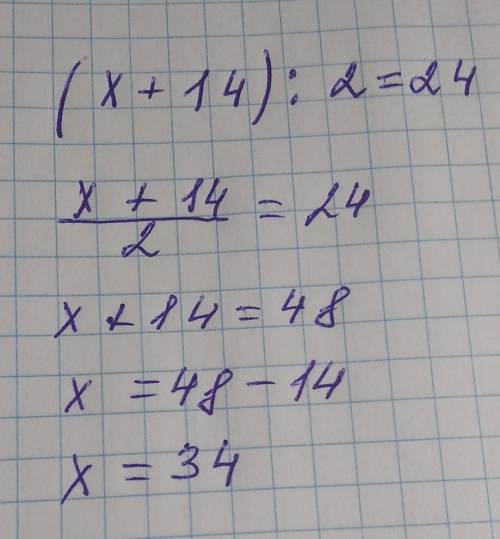 (x + 14) : 2 = 24
x + 14
2
= 24
x + 14 = 48
x = 48 - 14
x = 34